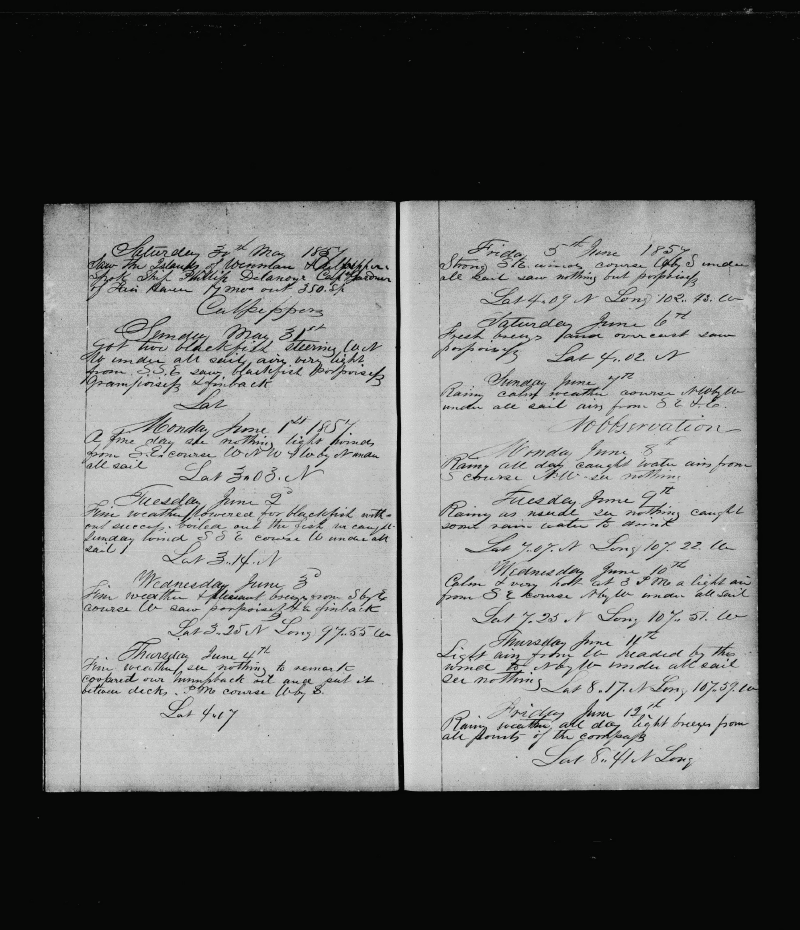 Saturday 30th May 1857
Saw the Islands of Wenman & Culpepper
Spoke Ship Phillip Delanoye Capt Gardner
of Fair Haven 7 mos out 350 Sp
Culpeppers
Sunday May 31st
Got two blackfish steering W N
W under all sail, airs very light
from S.S.E. saw blackfish porpoises
Grampoises & finback
Lat
Monday June 1st 1857
A fine day see nothing light winds
from S.E. course W N W & W by N under
all sail
Lat 3.03. N
Tuesday June 2d
Fine weather lowered for blackfish with
out success, boiled out the fish we caught
Sunday wind S S E course W under all
sail
Lat 3.14. N
Wednesday June 3d
Fine weather & pleasant breeze from S by E
course W saw porpoises & a finback
Lat 3.25 N Long 97.55 W
Thursday June 4th
Fine weather, see nothing to remark
coopered our humpback oil and put it
between decks. P M course W by S.
Lat 4.17
Friday 5th June 1857
Strong S.E. winds course W by S under
all sail saw nothing but porpoises
Lat 4.09 N Long 102.43. W
Saturday June 6th
Fresh breeze and overcast saw
porpoises
Lat 4.02 N
Sunday June 7th
Rainy calm weather course N W by W
under all sail airs from S E & E.
No Observation
Monday June 8th
Rainy all day caught water airs from
S course N.W. see nothing
Tuesday June 9th
Rainy as usual see nothing caught
some rain water to drink
Lat 7.07. N Long 107.22. W
Wednesday June 10th
Calm & very hot at 3 P M a light air
from S E course N by W under all sail
Lat 7.25 N Long 107.51. W
Thursday June 11th
Light airs from W headed by the
wind to N by W under all sail
see nothing
Lat 8.17. N Long 107.39. W
Friday June 12th
Rainy weather all day light breezes from
all points of the compass
Lat 8.41 N Long